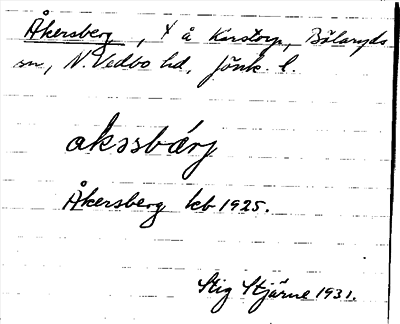 Åkersberg, X å Karstorp, Bälaryds
sn, N. Vedbo hd, Jönk. l.
akɜsbærj
Åkersberg kcb 1925.
Stig Stjärne 1931.